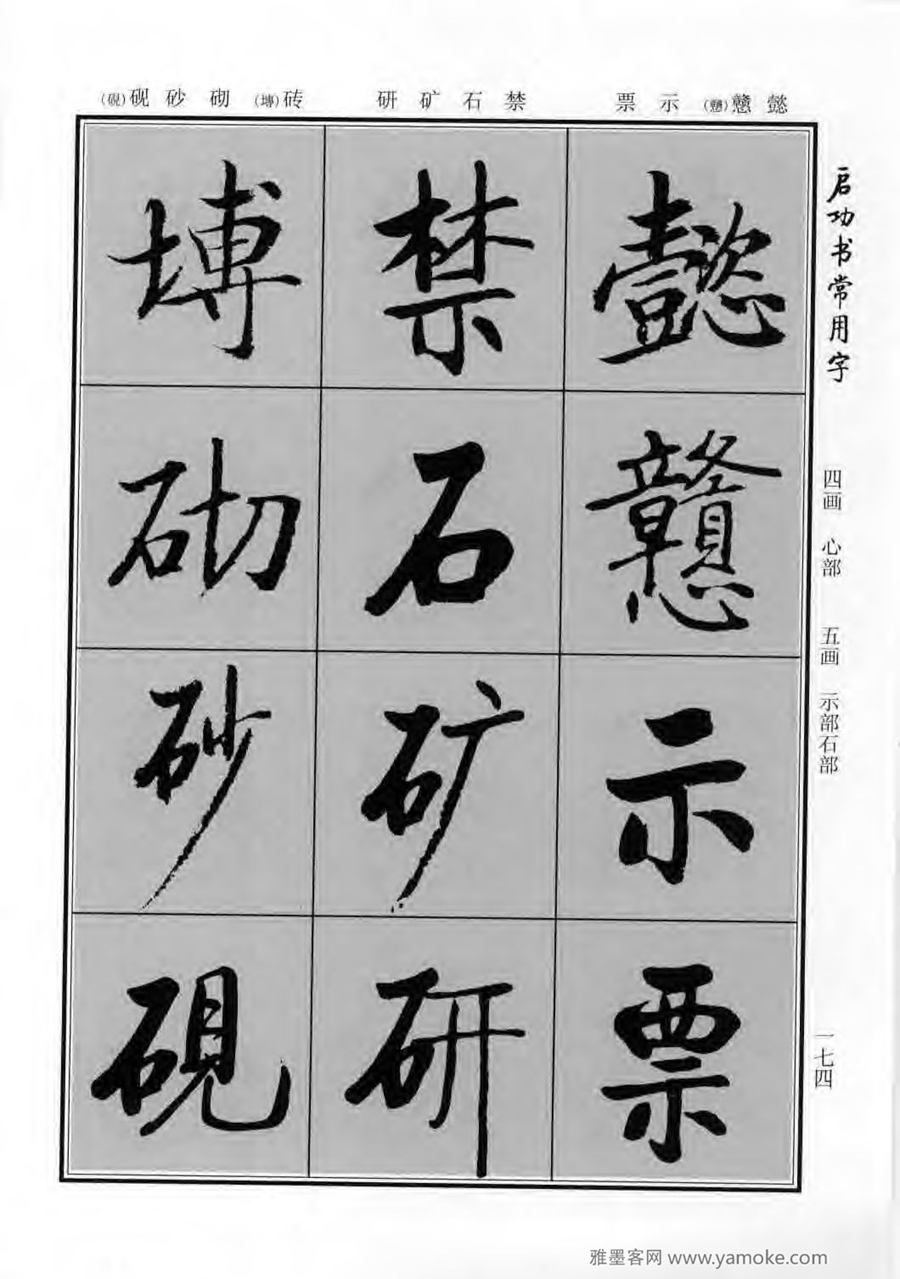 懿 戆(戇) 示 票
禁 石 矿 研
砖(塼) 砌 砂 砚(硯)
启功书常用字
四画 心部 五画 示部石部
一七四
懿
戇
示
票
禁
石
矿
研
塼
砌
砂
硯
雅墨客网 www.yamoke.com